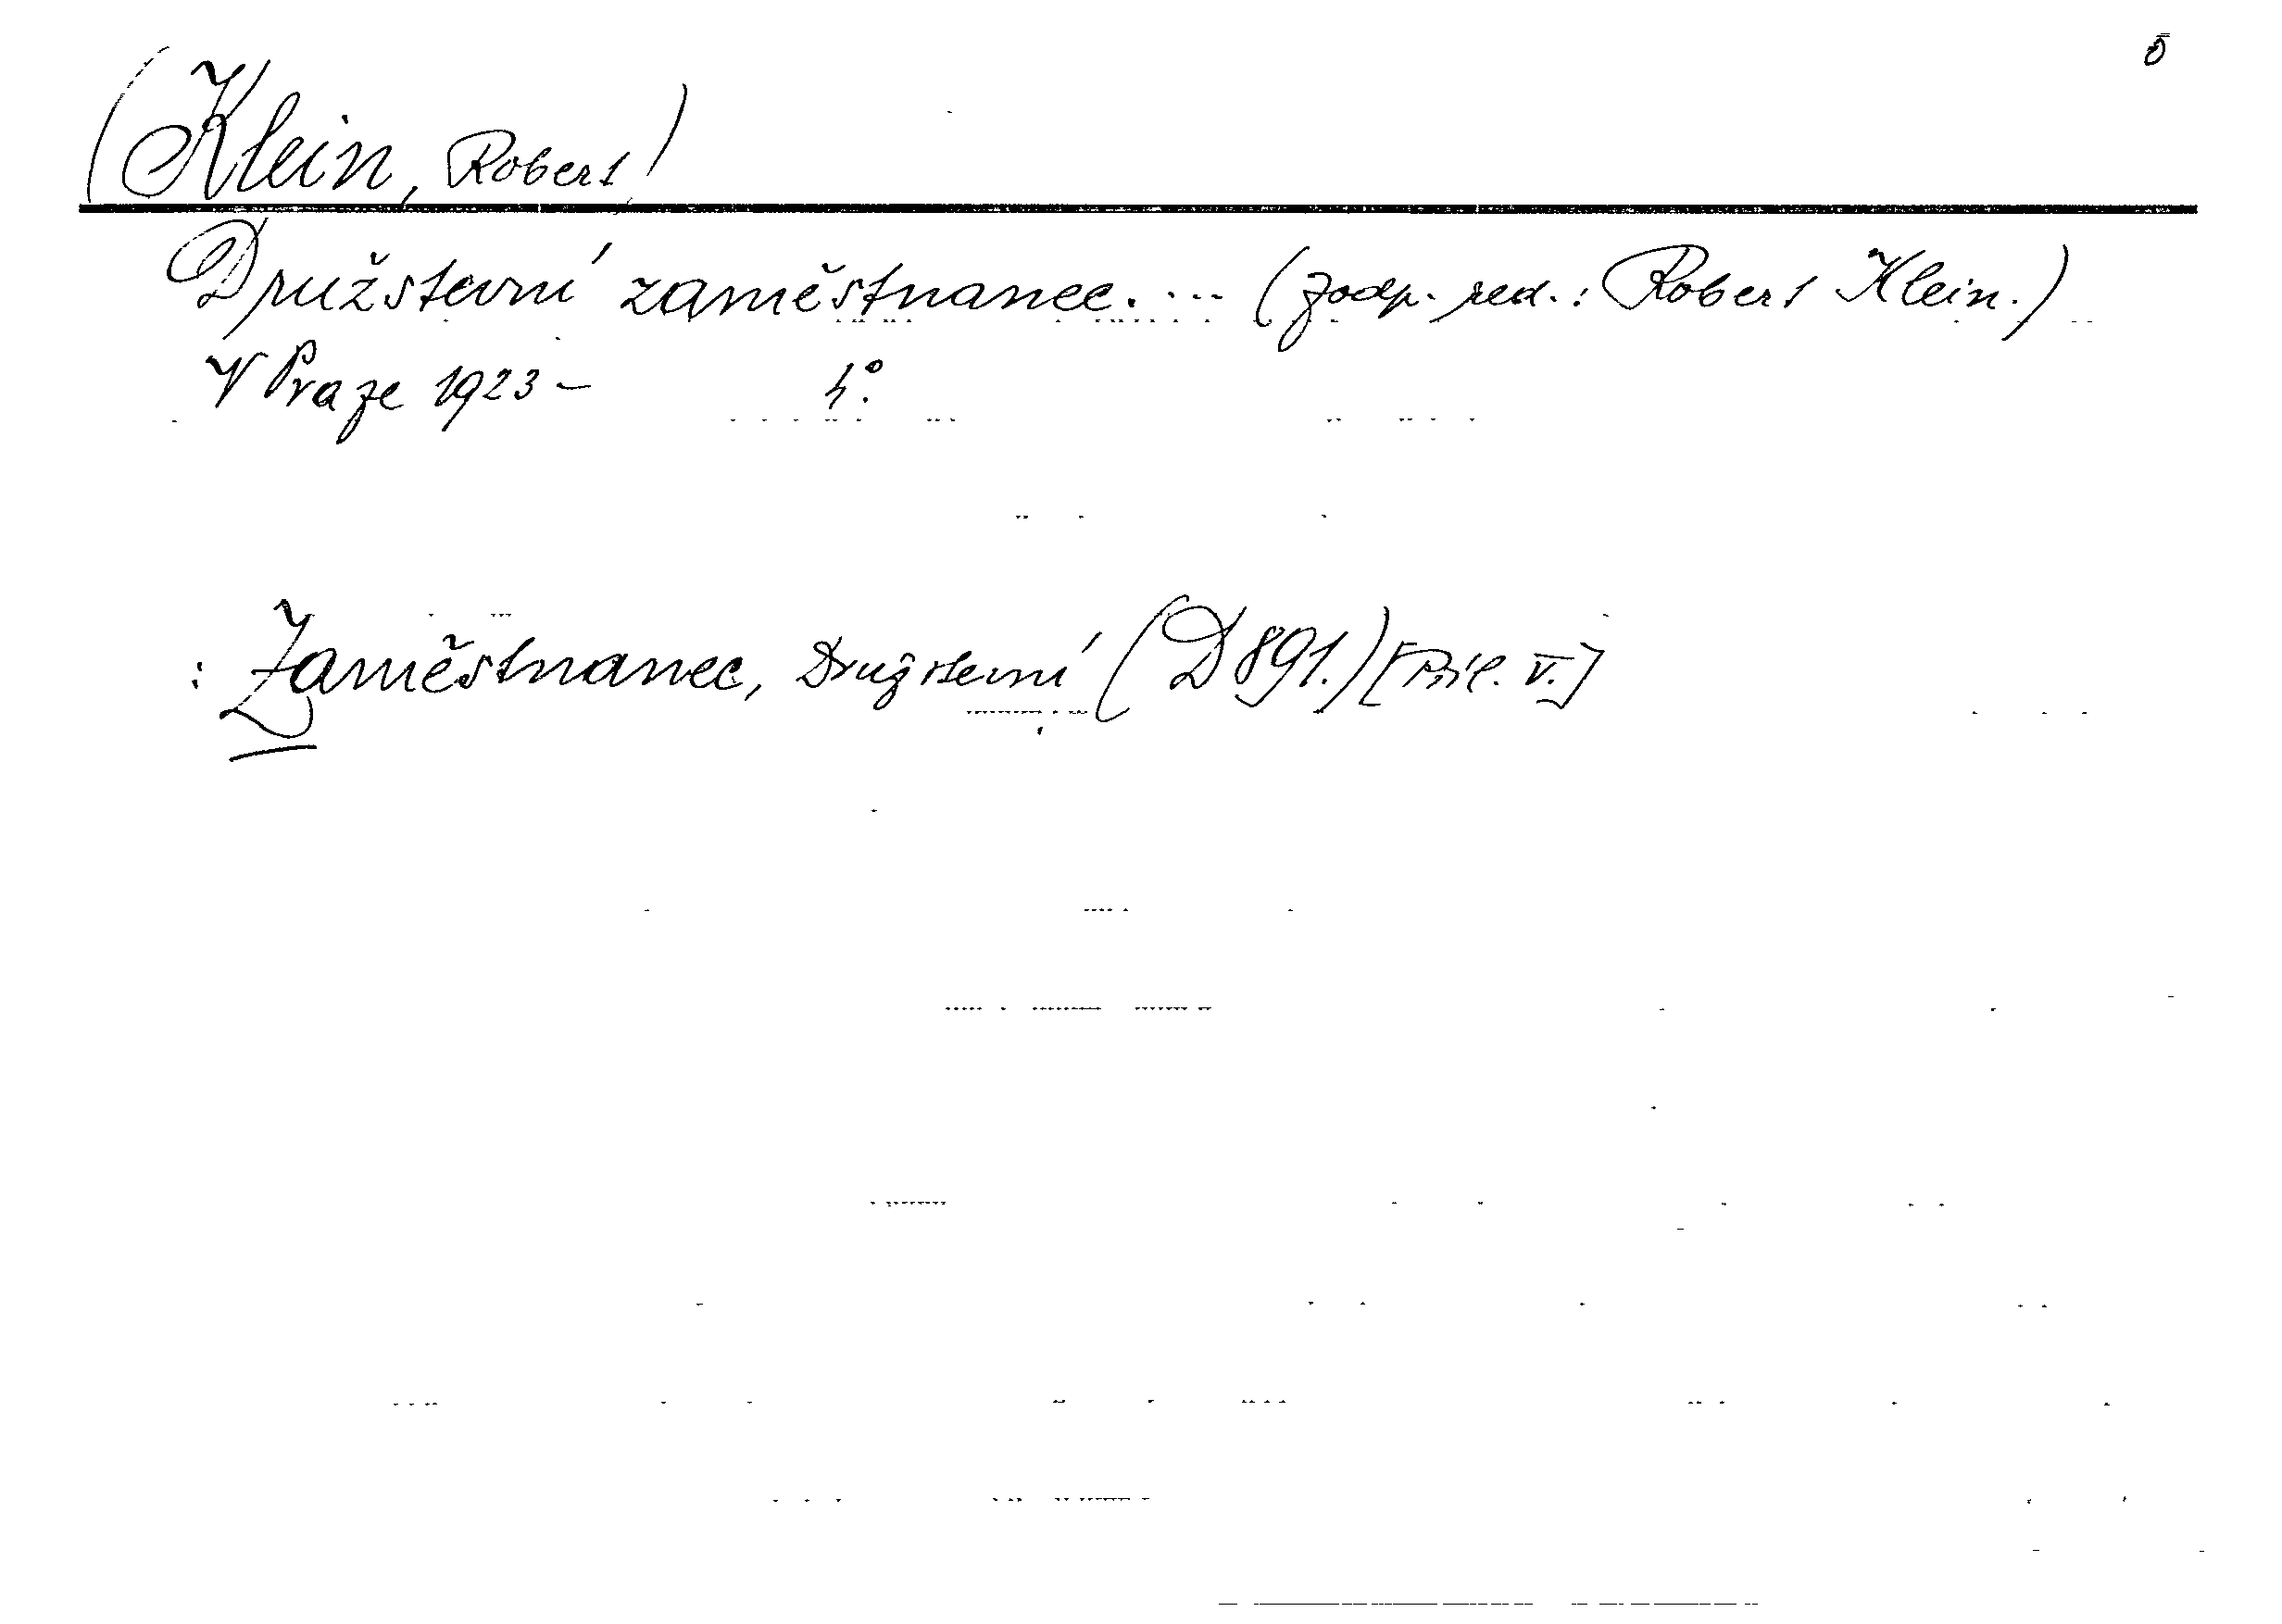 (Klein, Robert)
Družstevní zaměstnanec. ... (zodp. red.: Robert Klein.)
V Praze 1923 – 4°.
: Zaměstnanec, Družstevní (D 891.) [Příl. V.]